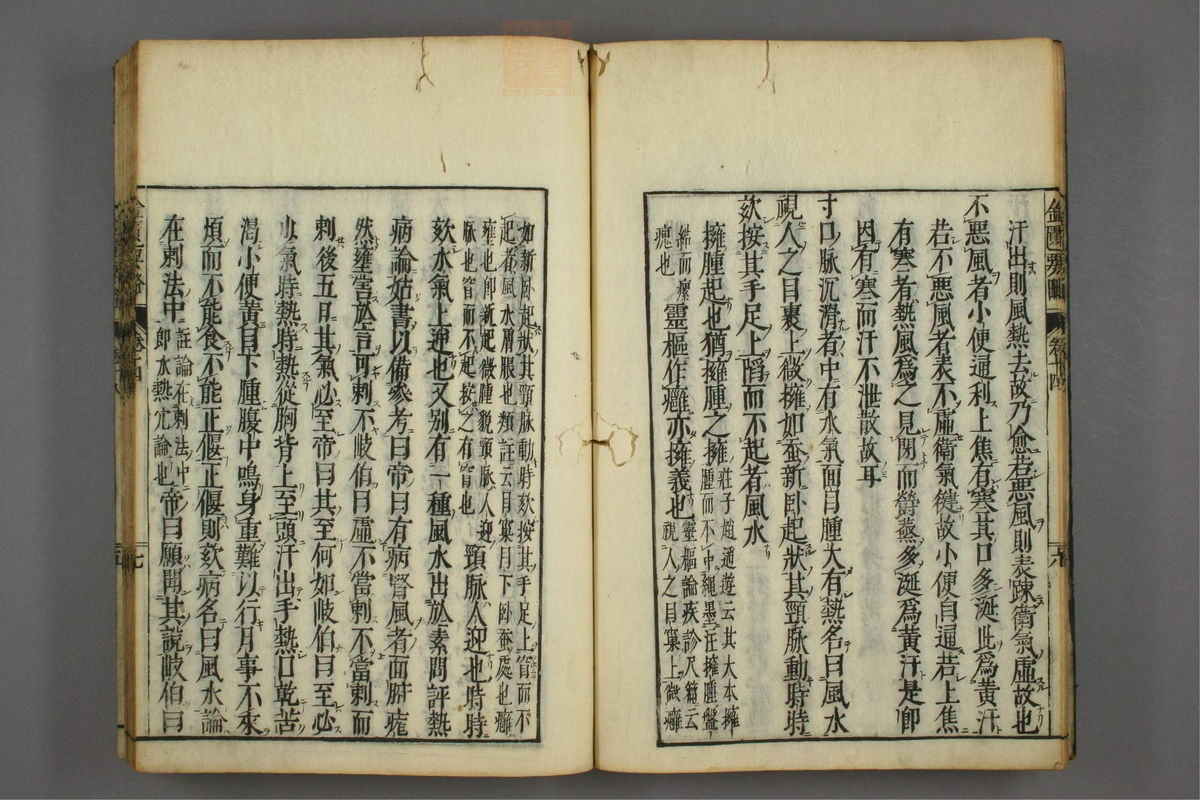 汗出則風熱去故乃愈若惡風則表踈衛氣虛故也
不惡風者小便通利上焦有寒其口多涎此爲黃汗
若不惡風者表不虛衛氣健故小便自通若上焦
有寒者熱風爲之見閉而欝蒸多涎爲黃汗是卽
因有寒而汗不泄散故耳
寸口脉沉滑者中有水氣面目腫大有熱名曰風水
視人之目裹上微擁如蚕新卧起狀其頸脉動時時
欬按其手足上陷而不起者風水
擁腫起也猶擁腫之擁
莊子逍遥遊云其大本擁
腫而不中繩墨注擁腫盤
結而瘰
瘣也
靈樞作癰亦擁義也
靈樞論疾診尺篇云
視人之目窠上微癰
如新卧起狀其頸脉動時欬按其手足上窅而不
起者風水膚脹也類註云目窠目下卧蚕處也癰
壅也卽新起微腫貌頸脉人迎
脉也窅而不起按之有窅也
頸脉人迎也時時
欬水氣上迎也又别有一種風水出於素問評熱
病論姑書以備叅考曰帝曰有病腎風者面胕痝
然壅害於言可刺不岐伯曰虛不當刺不當刺而
刺後五日其氣必至帝曰其至何如岐伯曰至必
少氣時熱時熱從胸背上至頭汗出手熱口乾苦
渴小便黃目下腫腹中鳴身重難以行月事不來
煩而不能食不能正偃正偃則欬病名曰風水論
在刺法中
註論在刺法中
卽水熱穴論也
帝曰願聞其說岐伯曰